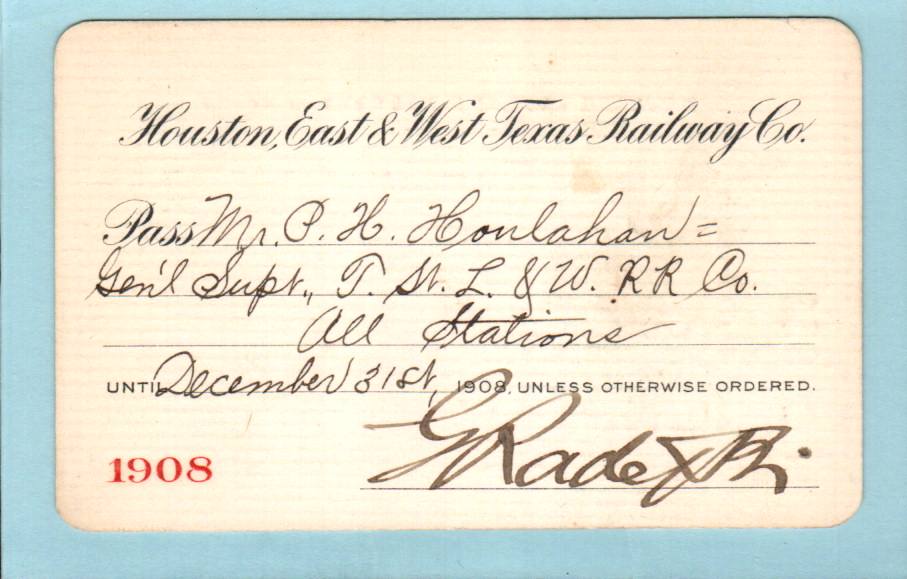 Houston, East & West Texas Railway Co.
Pass Mr. P. H. Houlahan =
Gen'l Supt., T. St. L. & W. RR Co.
All Stations
UNTIL December 31st, 1908, UNLESS OTHERWISE ORDERED.
1908